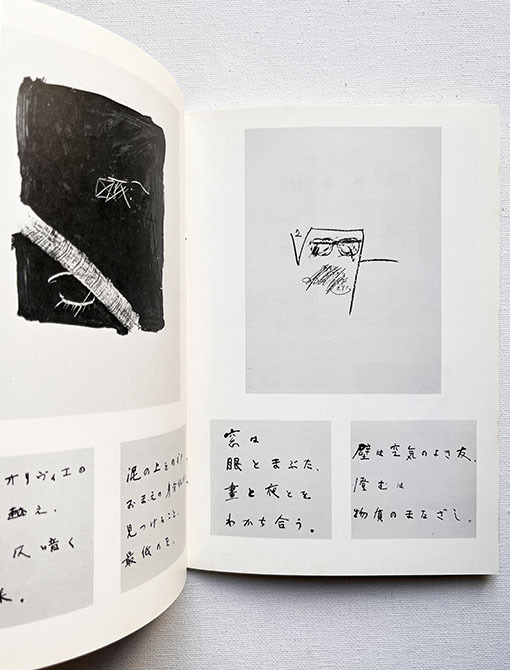 オリヴィエの
越え、
仄暗く
泥の上をのぞ
おまえの身
見つけること、
最低のを。
2
窓は
眼とまぶた、
晝と夜とを
わかち合う。
壁は空気のよき友、
窪むは
物質のまなざし。